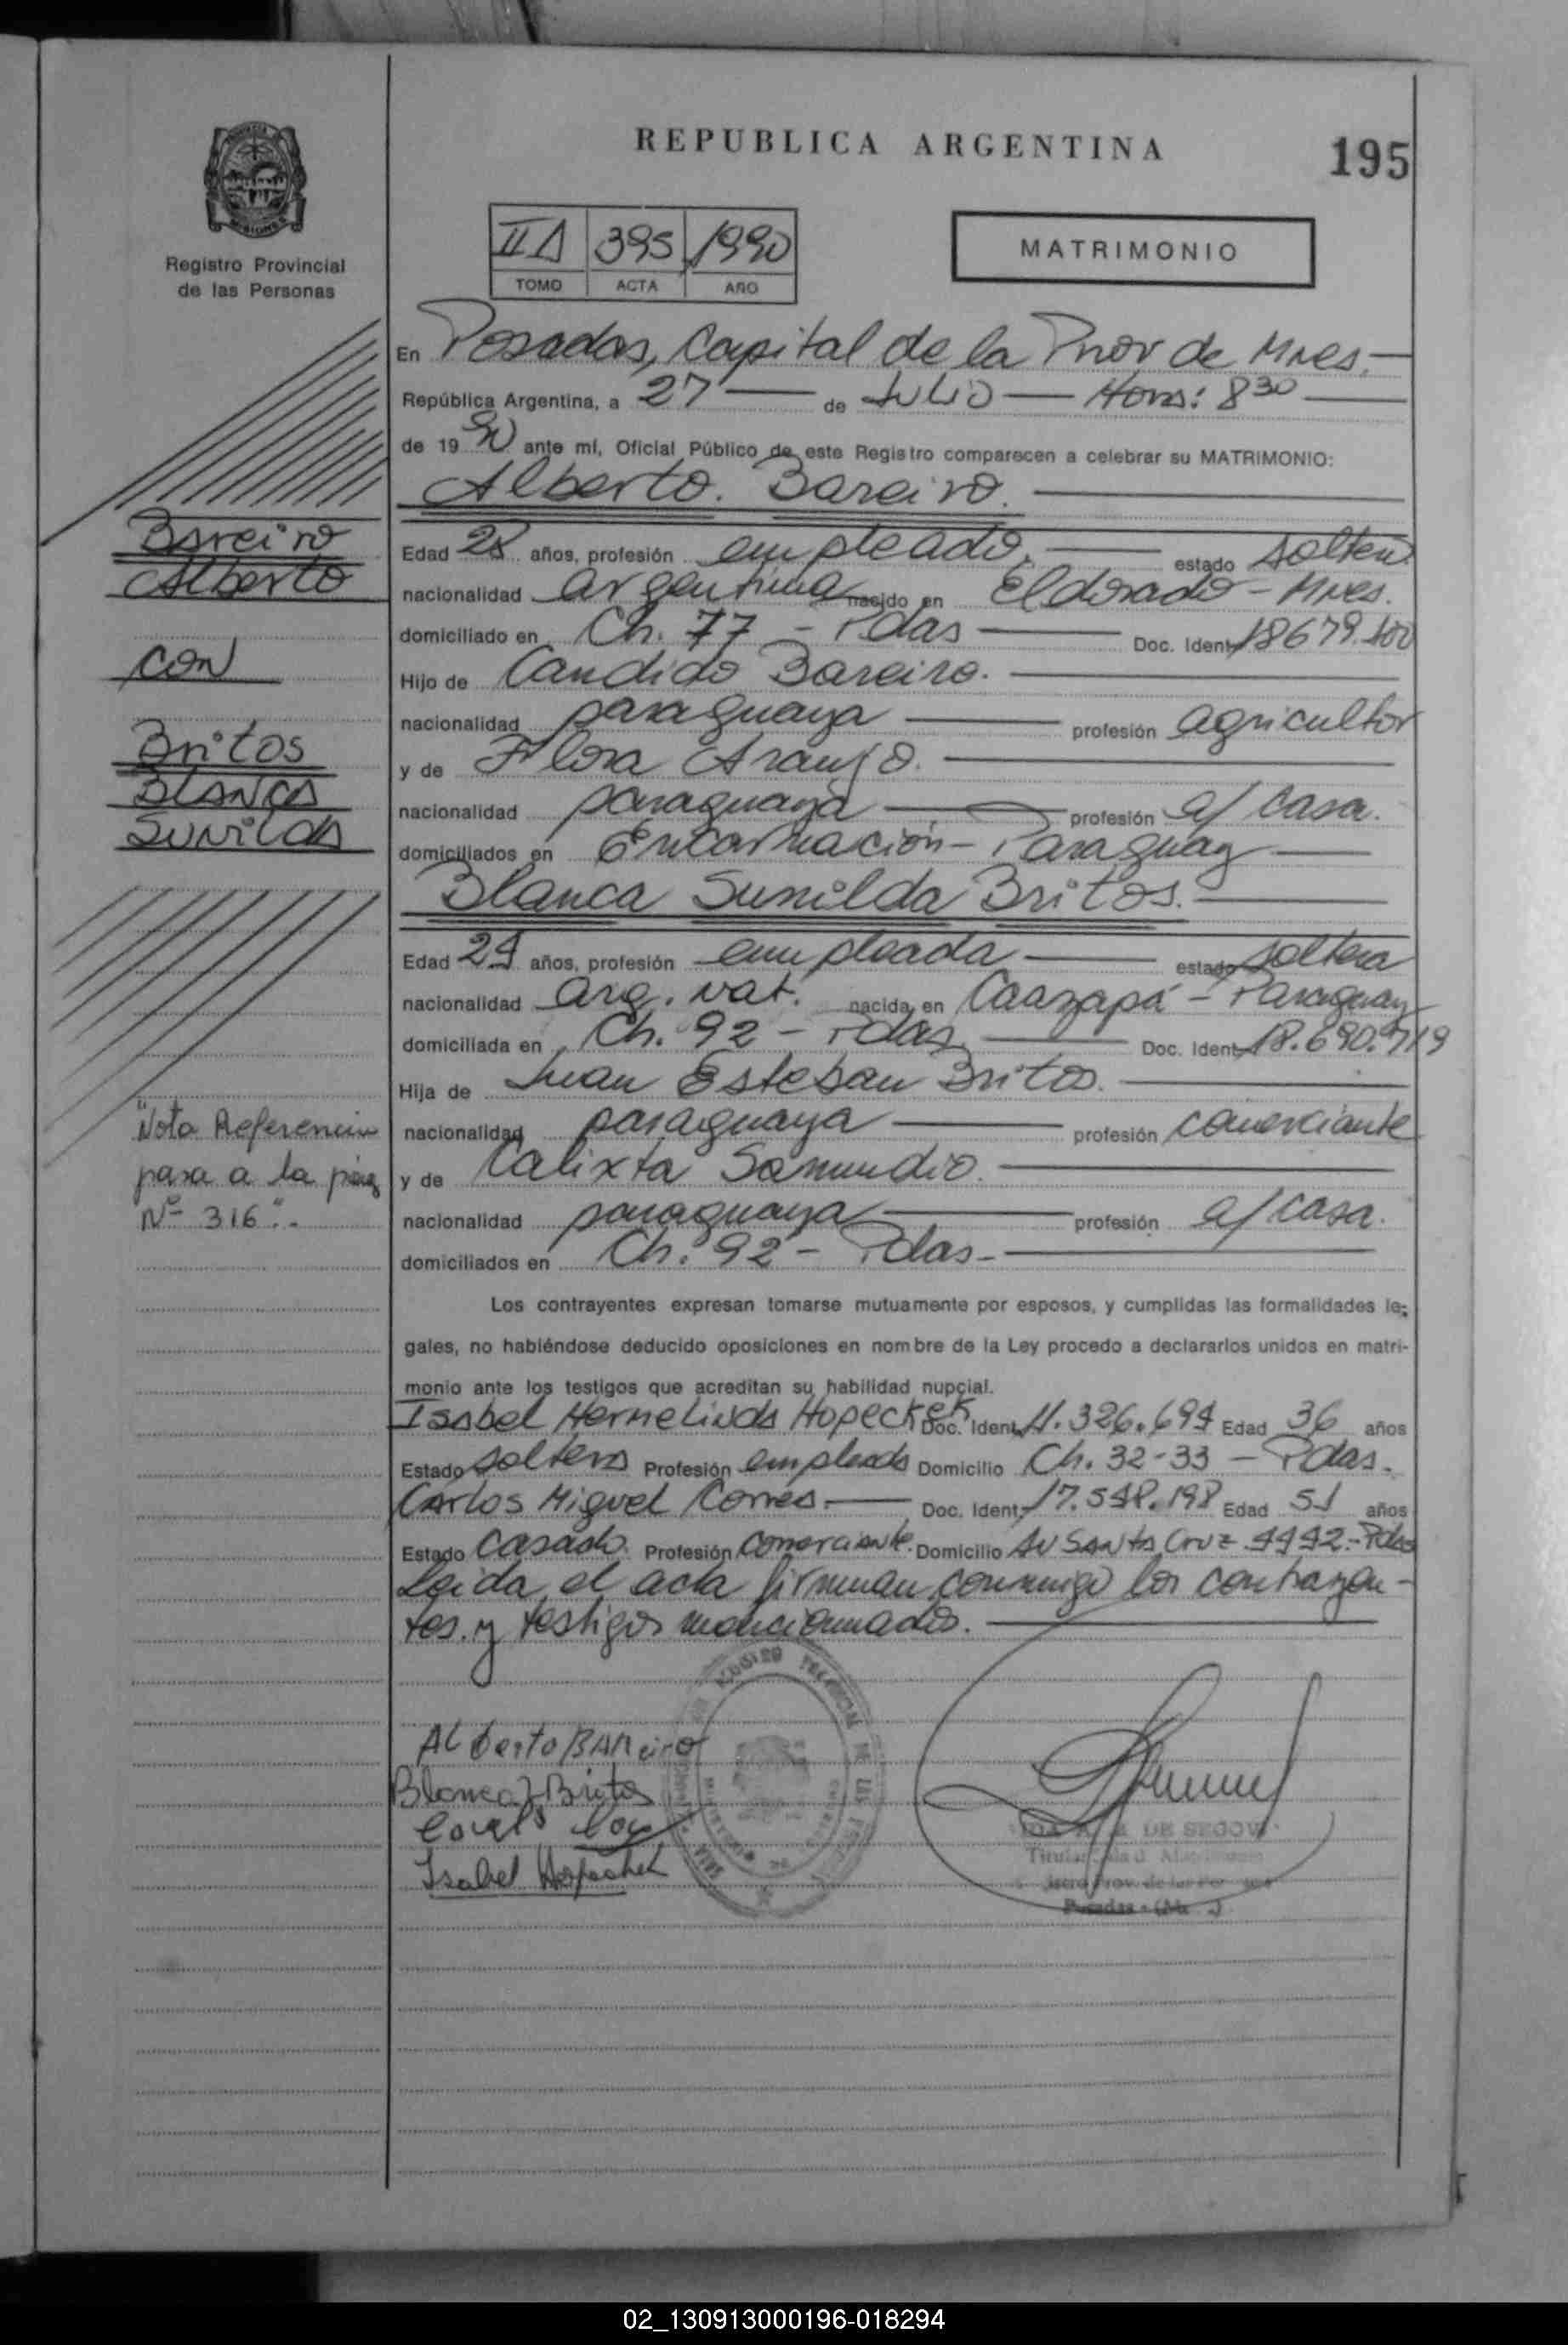 REPUBLICA ARGENTINA
195
Registro Provincial
de las Personas
II A 395 1990
TOMO ACTA AÑO
MATRIMONIO
En Posadas, Capital de la Prov de Mnes.
República Argentina, a 27 de Julio Horas: 8 30
de 19 90 ante mí, Oficial Público de este Registro comparecen a celebrar su MATRIMONIO:
Alberto. Bareiro.
Bareiro
Alberto
con
Britos
Blanca
Sunilda
Edad 28 años, profesión empleado. estado soltero
nacionalidad argentina nacido en Eldorado - Mnes.
domiciliado en Ch. 77 - Pdas Doc. Ident 18679.100
Hijo de Candido Bareiro.
nacionalidad paraguaya profesión agricultor
y de Flora Araujo.
nacionalidad paraguaya profesión a/ casa.
domiciliados en Encarnación - Paraguay
Blanca Sunilda Britos.
Edad 24 años, profesión empleada estado soltera
nacionalidad arg. nat. nacida en Caazapá - Paraguay
domiciliada en Ch. 92 - Pdas Doc. Ident 18.690.719
Hija de Juan Esteban Britos.
nacionalidad paraguaya profesión comerciante
y de Calixta Samudio.
nacionalidad paraguaya profesión a/ casa.
domiciliados en Ch. 92 - Pdas-
"Nota Referencia
pasa a la pág
Nº 316".
Los contrayentes expresan tomarse mutuamente por esposos, y cumplidas las formalidades le-
gales, no habiéndose deducido oposiciones en nombre de la Ley procedo a declararlos unidos en matri-
monio ante los testigos que acreditan su habilidad nupcial.
Isabel Hermelinda Hopeckek Doc. Ident 11.326.694 Edad 36 años
Estado soltera Profesión empleada Domicilio Ch. 32-33 - Pdas.
Carlos Miguel Correa. Doc. Ident. 17.548.198 Edad 51 años
Estado Casado. Profesión comerciante. Domicilio Av Santa Cruz 4492.- Pdas
Leida el acta firman conmigo los contrayen-
tes y testigos mencionados.
Alberto Bareiro
Blanca S Britos
Isabel Hopeckek
DE SEGOVI
Posadas - (Mn )
02_130913000196-018294